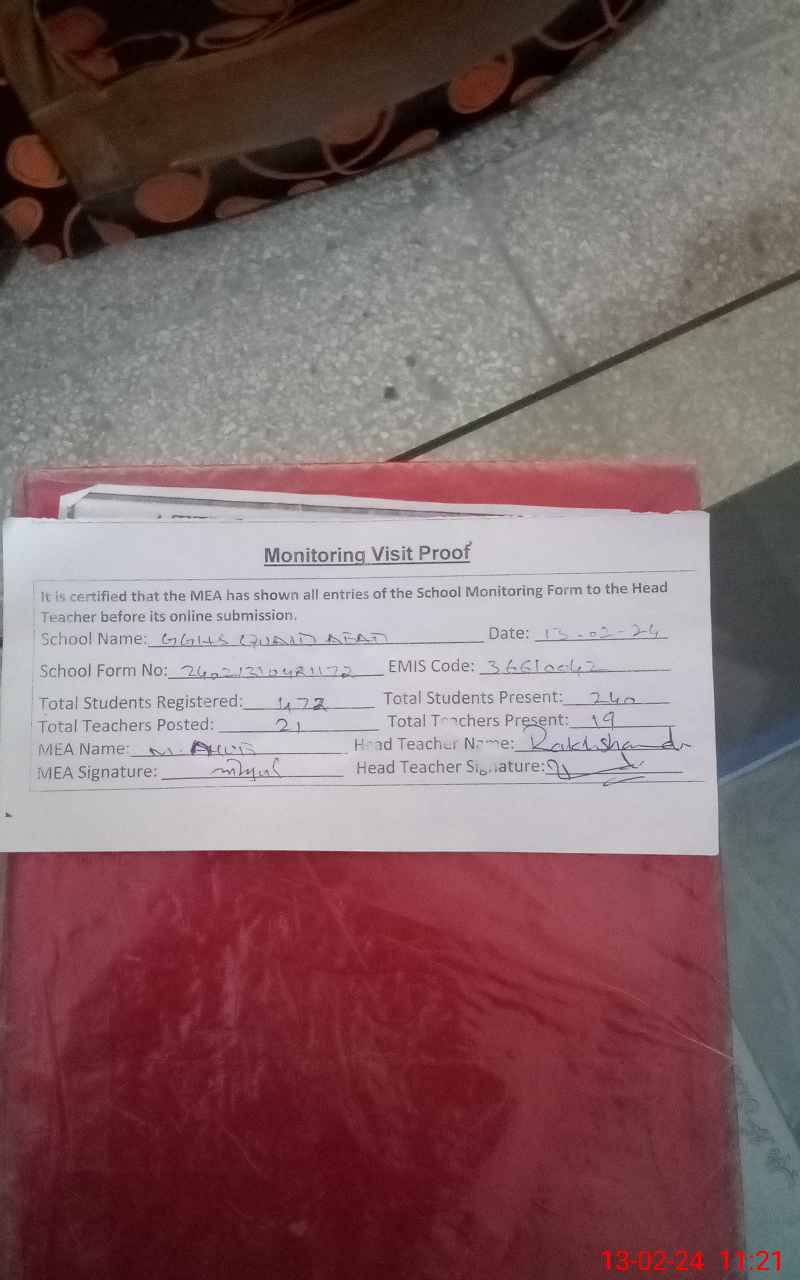 Monitoring Visit Proof
It is certified that the MEA has shown all entries of the School Monitoring Form to the Head
Teacher before its online submission.
School Name: GGHS QUAID ABAD Date: 13-02-24
School Form No: EMIS Code:
Total Students Registered: 472 Total Students Present: 240
Total Teachers Posted: 21 Total Teachers Present: 19
MEA Name: M. Head Teacher Name: Rakhshanda
MEA Signature: Head Teacher Signature:
13-02-24 11:21